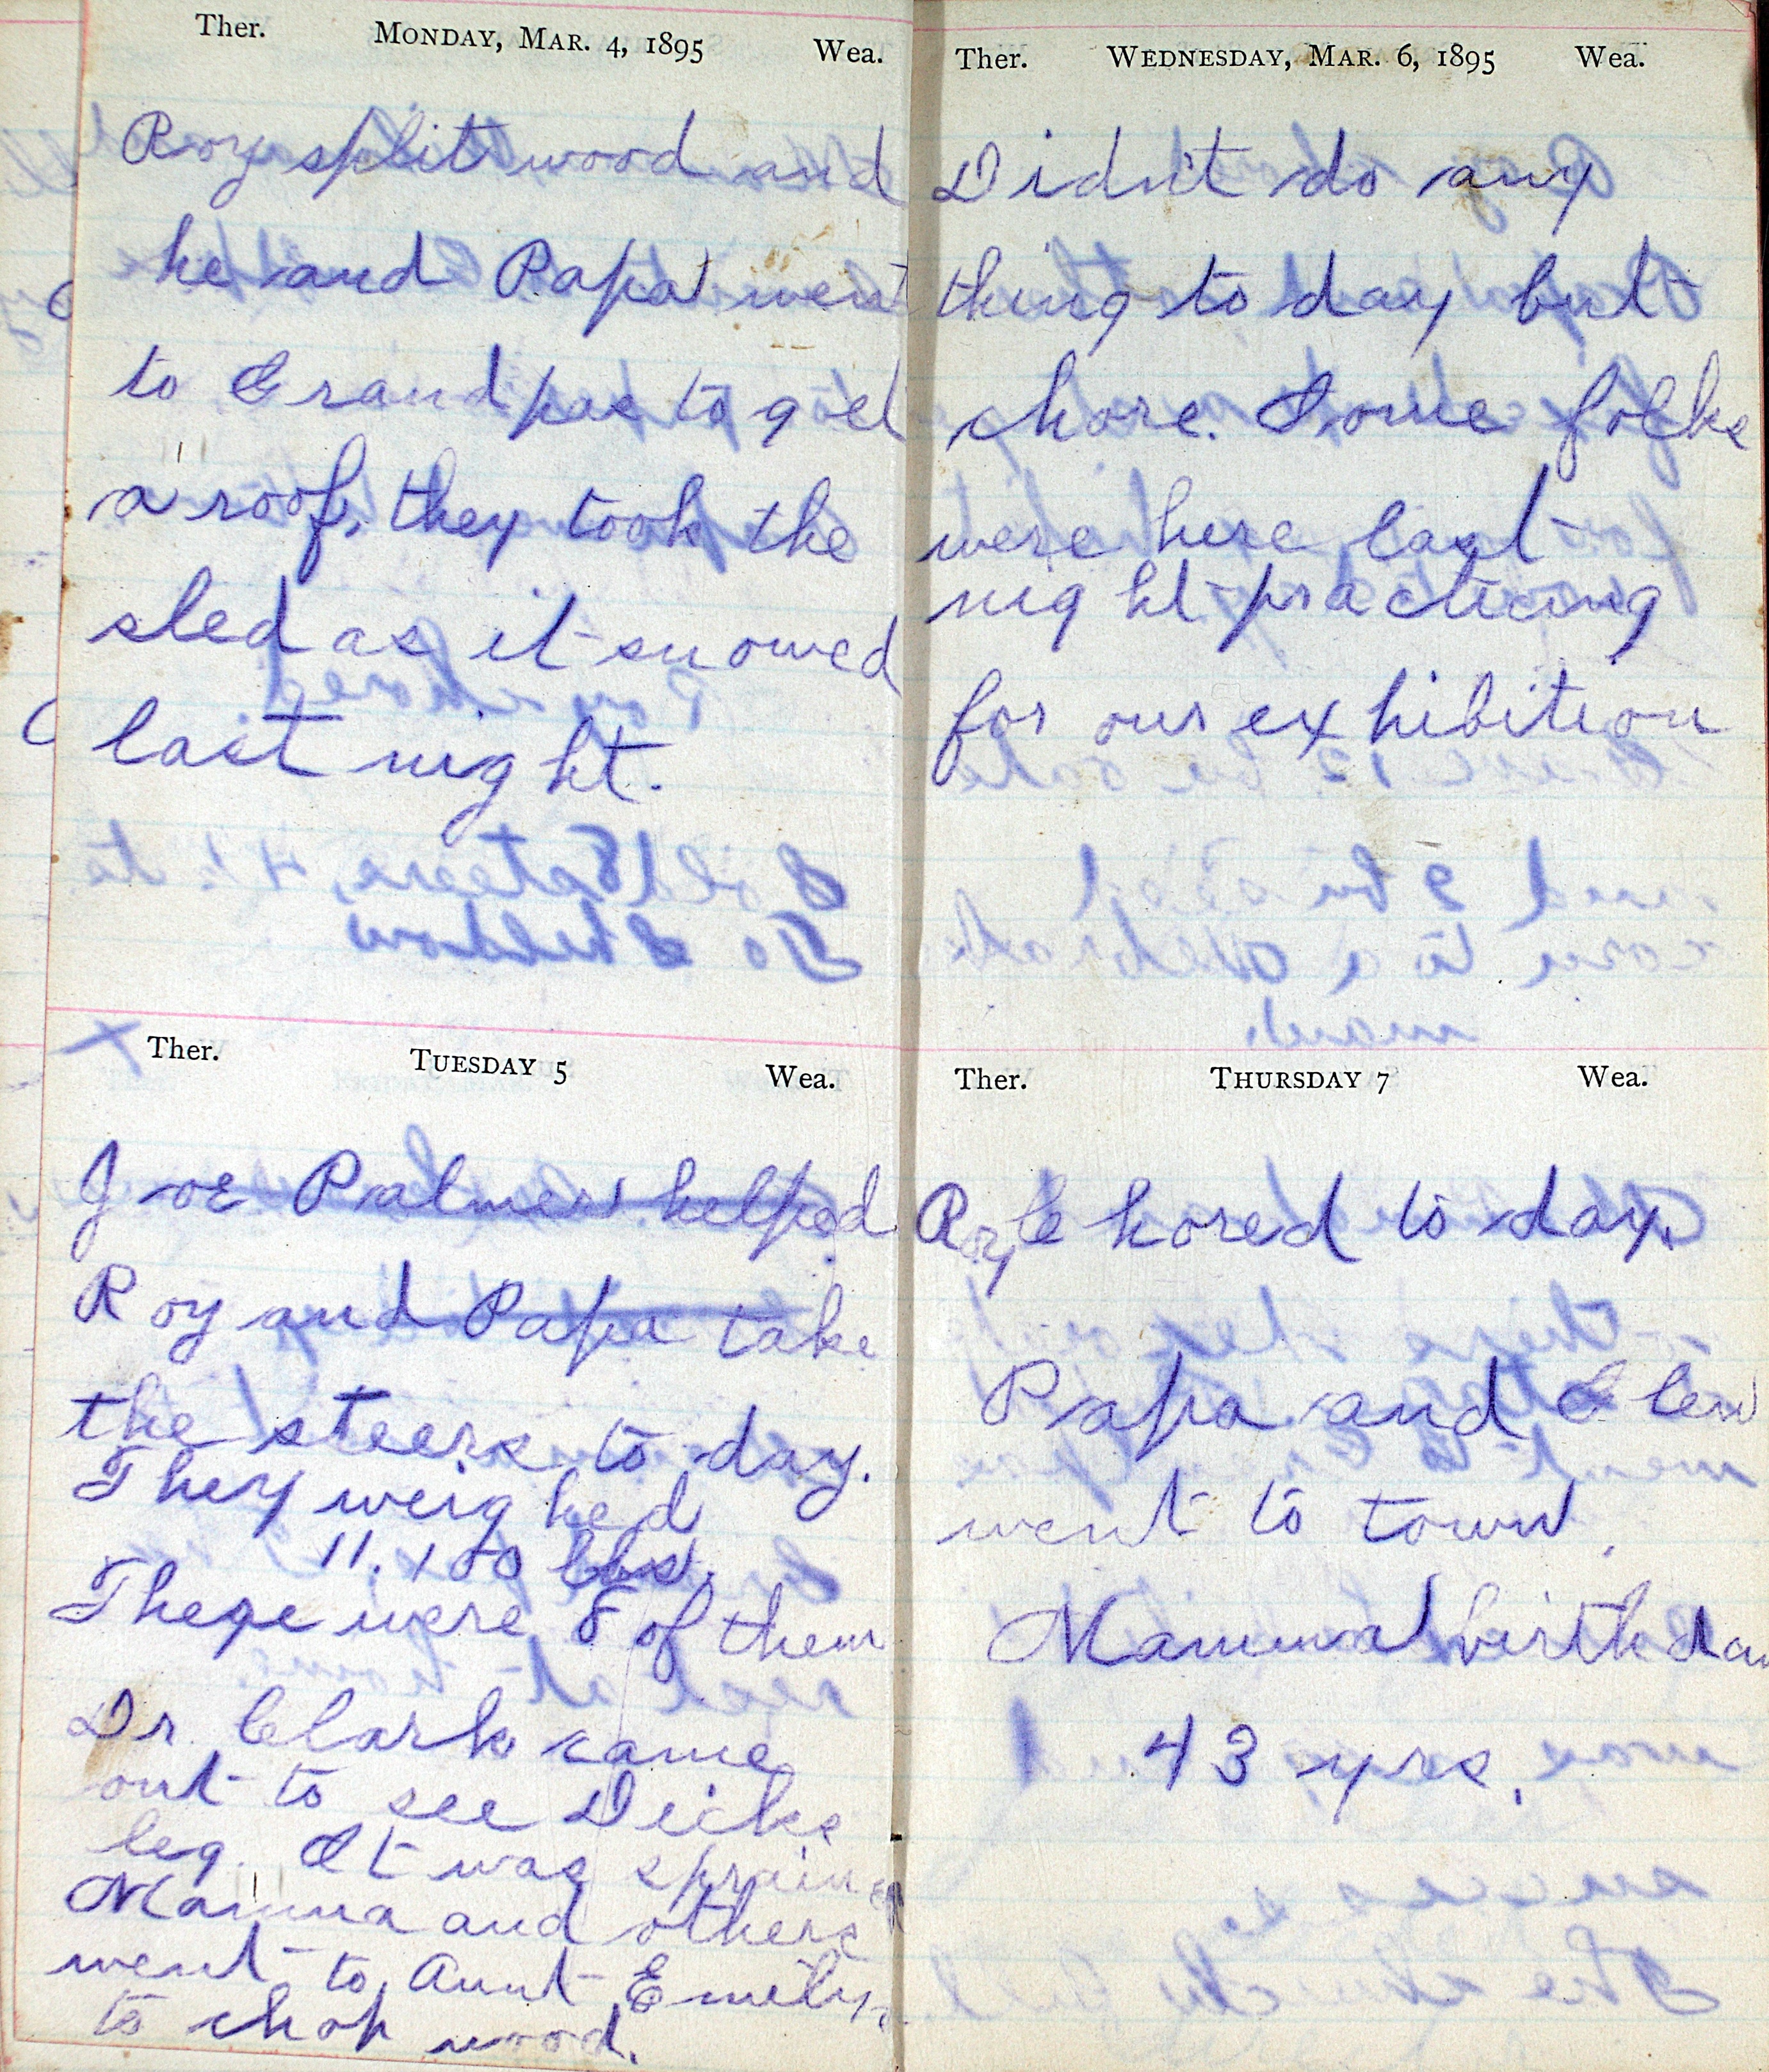 Ther. MONDAY, MAR. 4, 1895 Wea.
Roy split wood and
he and Papa went
to Grandpas to get
a roof, they took the
sled as it snowed
last night.
Ther. TUESDAY 5 Wea.
Joe Palmer helped
Roy and Papa take
the steers to day.
They weighed
11.100 lbs.
There were 8 of them
Dr. Clark came
out to see Dicks
leg. It was sprained
Mamma and others
went to Aunt Emilys
to chop wood.
Ther. WEDNESDAY, MAR. 6, 1895 Wea.
Didn't do any
thing to day but
chore. Some folks
were here last
night practicing
for our exhibition
Ther. THURSDAY 7 Wea.
Roy chored to day.
Papa and Clem
went to town.
Mamma birthday
43 yrs.